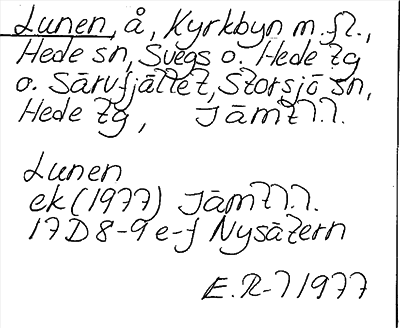 Lunen, å, Kyrkbyn m.fl.,
Hede sn, Svegs o. Hede tg
o. Särvfjället, Storsjö sn,
Hede tg, Jämtl.
Lunen
ek (1977) Jämtl.
17D 8-9 e-f Nysätern
E.R-l 1977